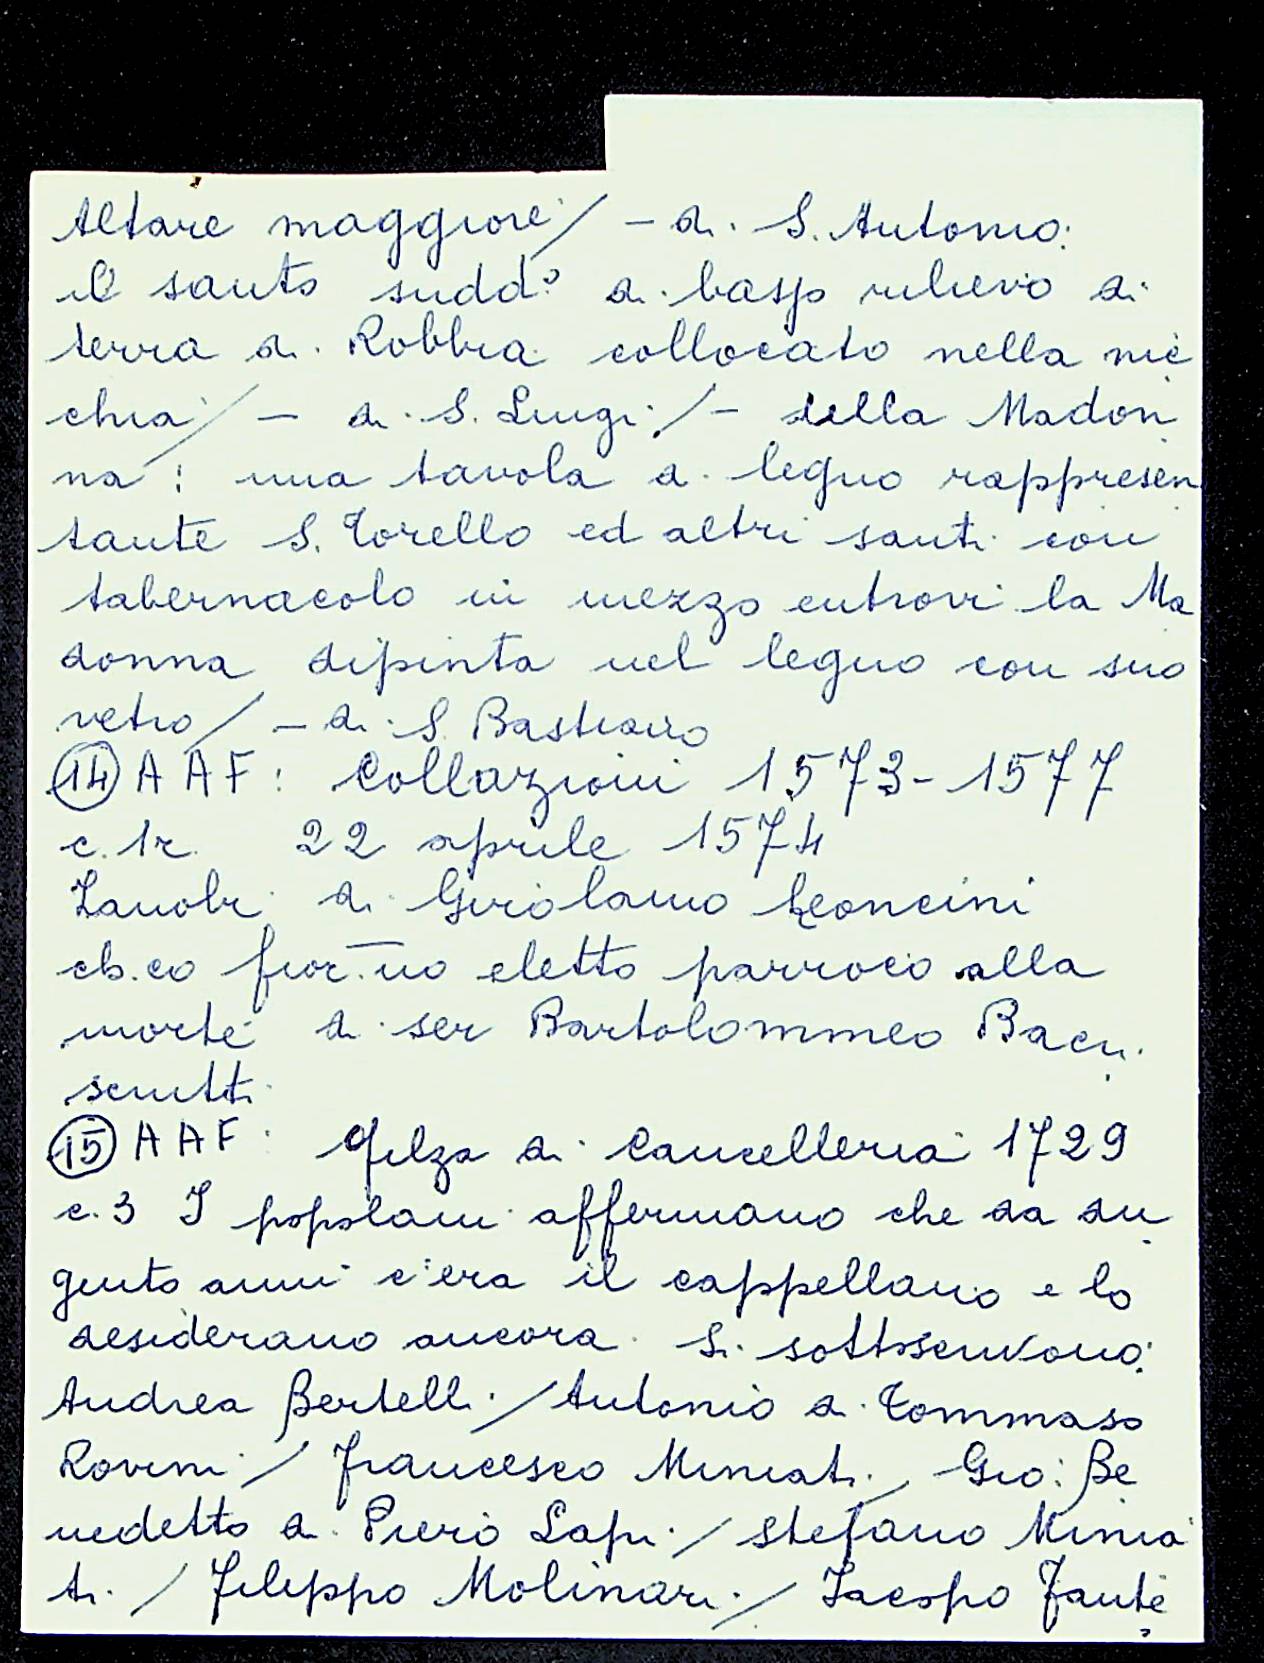 Altare maggiore / - di S. Antonio:
il santo sudd° di basso rilievo di
terra di Robbia collocato nella nic
chia / - di S. Luigi / - della Madon
na: una tavola di legno rappresen
tante S. Torello ed altri santi con
tabernacolo in mezzo entrovi la Ma
donna dipinta nel legno con suo
vetro / - di S. Bastiano
(14) A A F: Collazioni 1573-1577
c. 1r. 22 aprile 1574
Zanobi di Girolamo Leoncini
ch.co fior.no eletto parroco alla
morte di ser Bartolommeo Baci
(15) A A F: Filza di Cancelleria 1729
c. 3 I popolani affermano che da du
gento anni c'era il cappellano e lo
desiderano ancora. Si sottoscrivono:
Andrea Bertelli / Antonio di Tommaso
Rovini / Francesco Miniati / Gio: Be
nedetto di Piero Lapi / Stefano Minia
ti / Filippo Molinari / Jacopo Fante